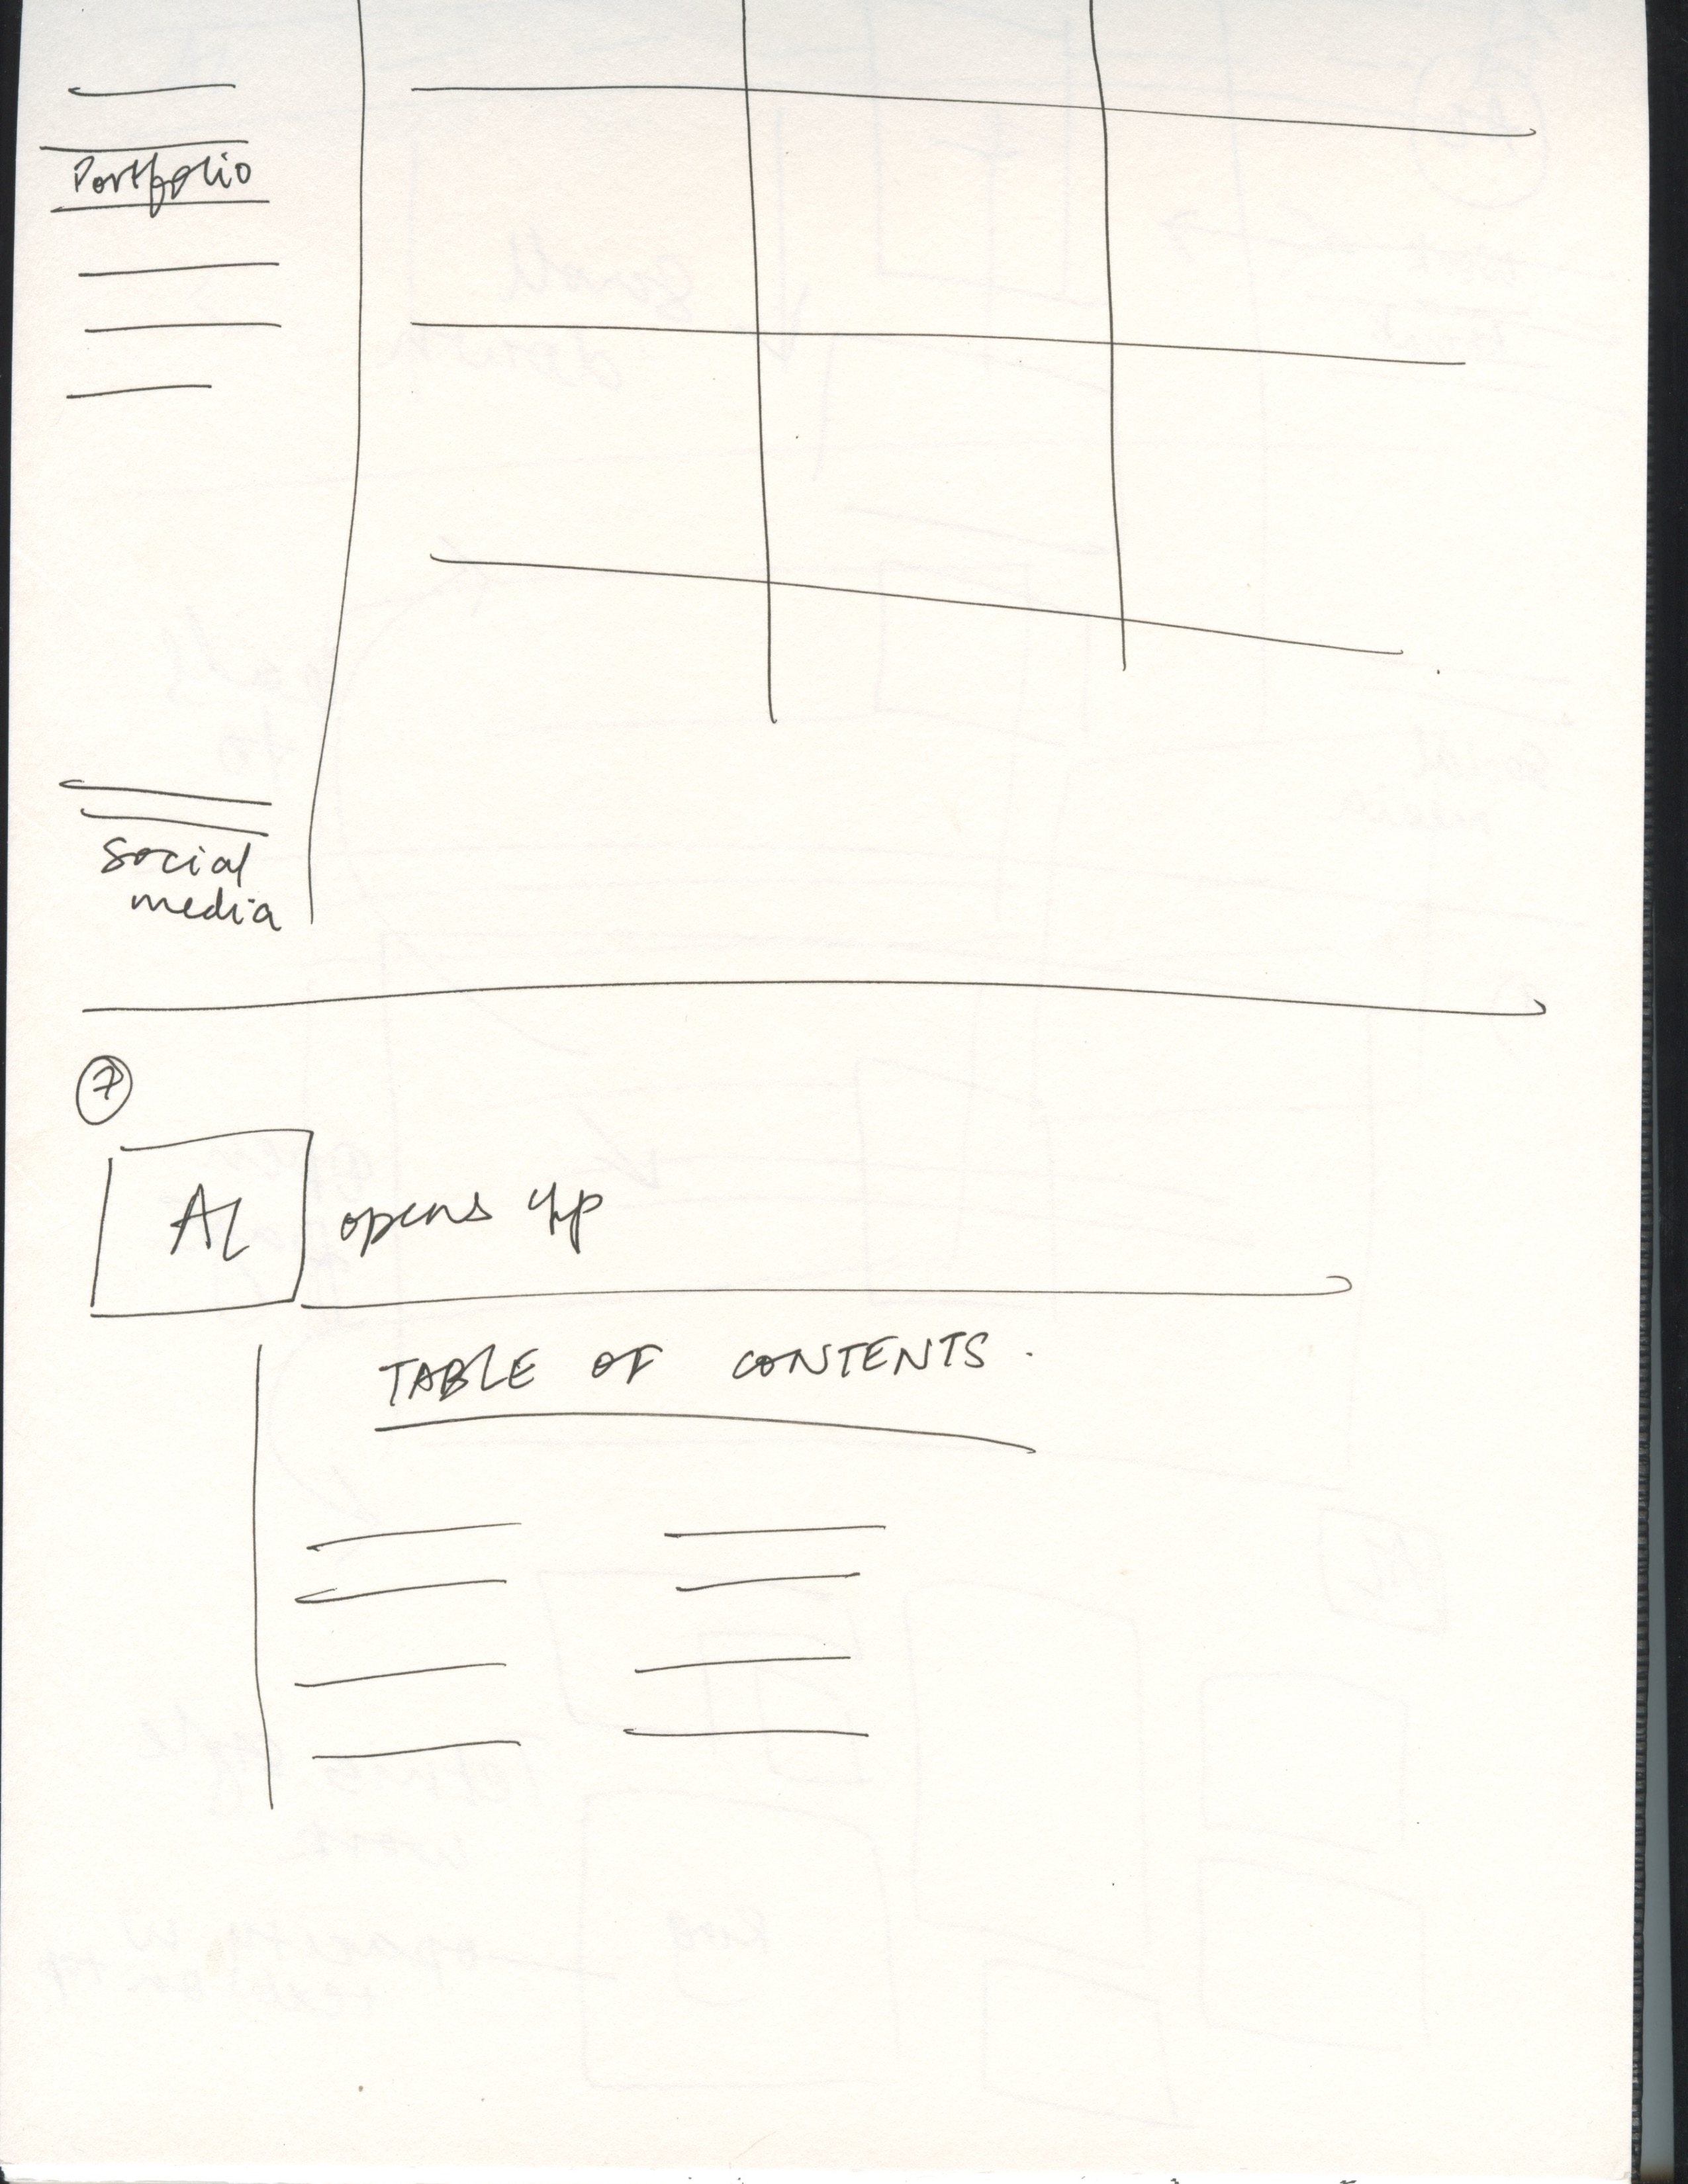 Portfolio
social
media
7
AL opens up
TABLE OF CONTENTS.